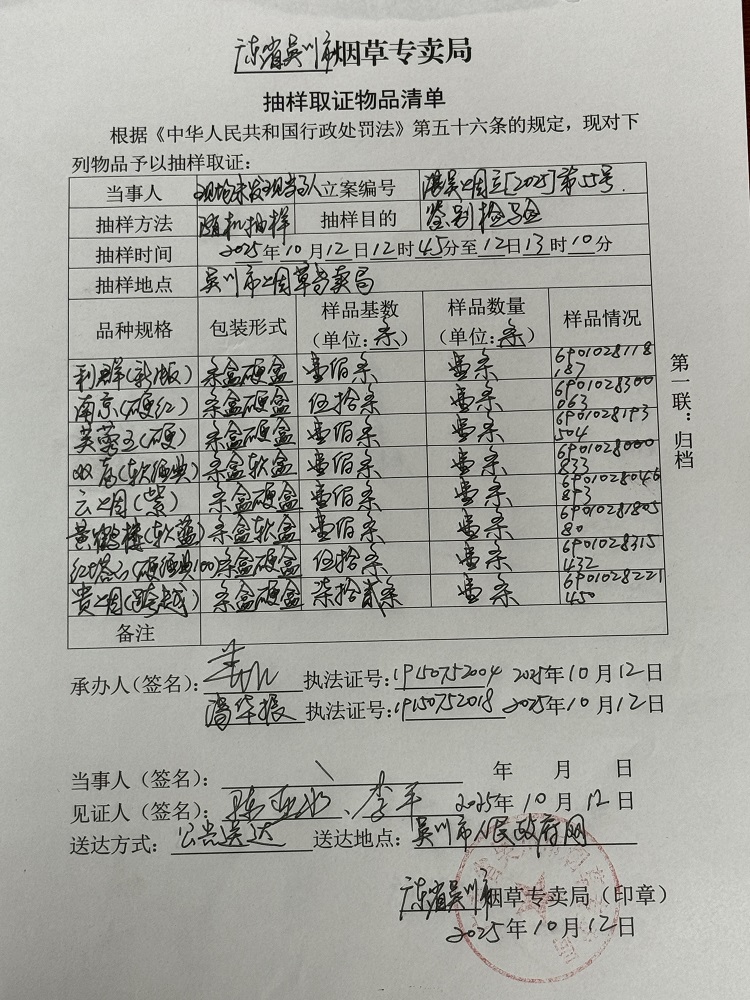 广东省吴川市烟草专卖局
抽样取证物品清单
根据《中华人民共和国行政处罚法》第五十六条的规定，现对下
列物品予以抽样取证：
当事人 现场未发现当事人 立案编号 湛吴烟立[2025]第55号
抽样方法 随机抽样 抽样目的 鉴别检验
抽样时间 2025年10月12日12时45分至12日13时10分
抽样地点 吴川市烟草专卖局
品种规格 包装形式 样品基数（单位：条） 样品数量（单位：条） 样品情况
利群(新版) 条盒硬盒 壹佰条 壹条 6901028118187
南京(硬红) 条盒硬盒 伍拾条 壹条 6901028300063
芙蓉王(硬) 条盒硬盒 壹佰条 壹条 6901028193504
双喜(软经典) 条盒软盒 壹佰条 壹条 6901028000833
云烟(紫) 条盒硬盒 壹佰条 壹条 6901028046893
黄鹤楼(软蓝) 条盒软盒 壹佰条 壹条 6901028180580
红塔山(硬经典100) 条盒硬盒 伍拾条 壹条 6901028315432
贵烟(跨越) 条盒硬盒 柒拾贰条 壹条 6901028221450
备注
第一联：归档
承办人（签名）： 执法证号：19150752004 2025年10月12日
冯华振 执法证号：19150752018 2025年10月12日
当事人（签名）：\ 年 月 日
见证人（签名）：陈亚水、李平 2025年10月12日
送达方式：公告送达 送达地点：吴川市人民政府网
广东省吴川市烟草专卖局（印章）
2025年10月12日